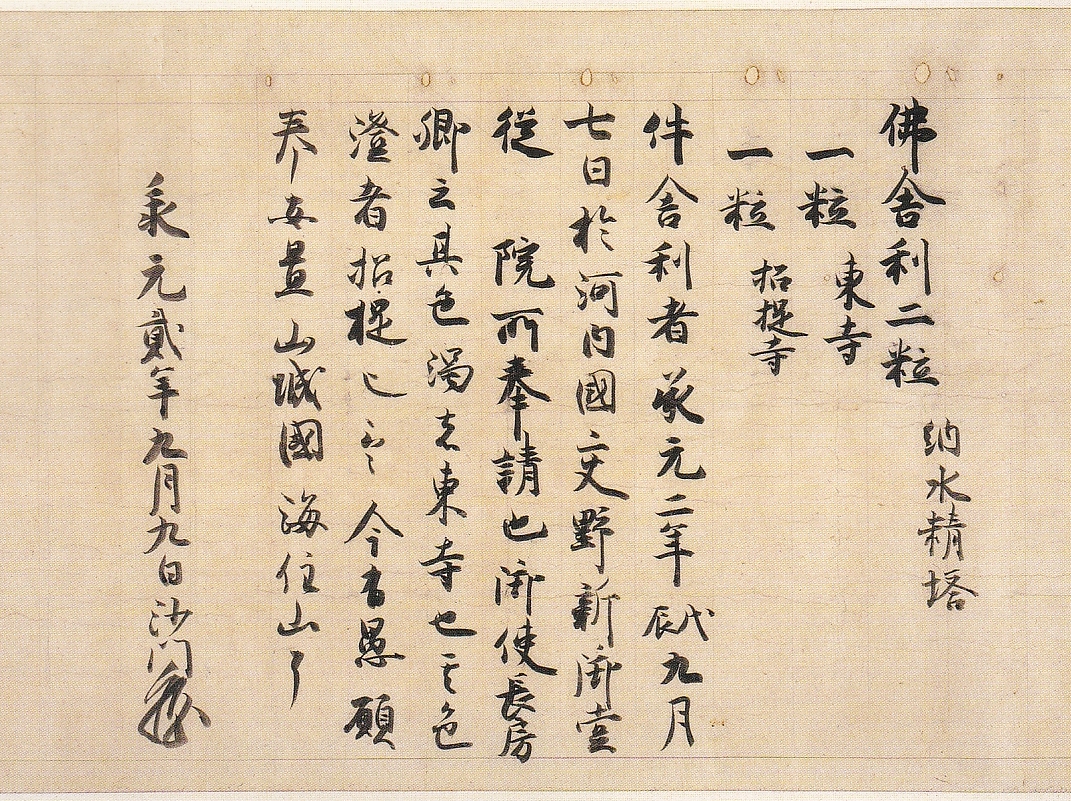 佛舎利二粒 納水精塔
一粒 東寺
一粒 招提寺
件舎利者承元二年戊辰九月
七日於河内國交野新御堂
従 院所奉請也御使長房
卿云其色濁者東寺也其色
澄者招提也云々今有愚願
奉安置山城國海住山了
承元貳年九月九日沙門